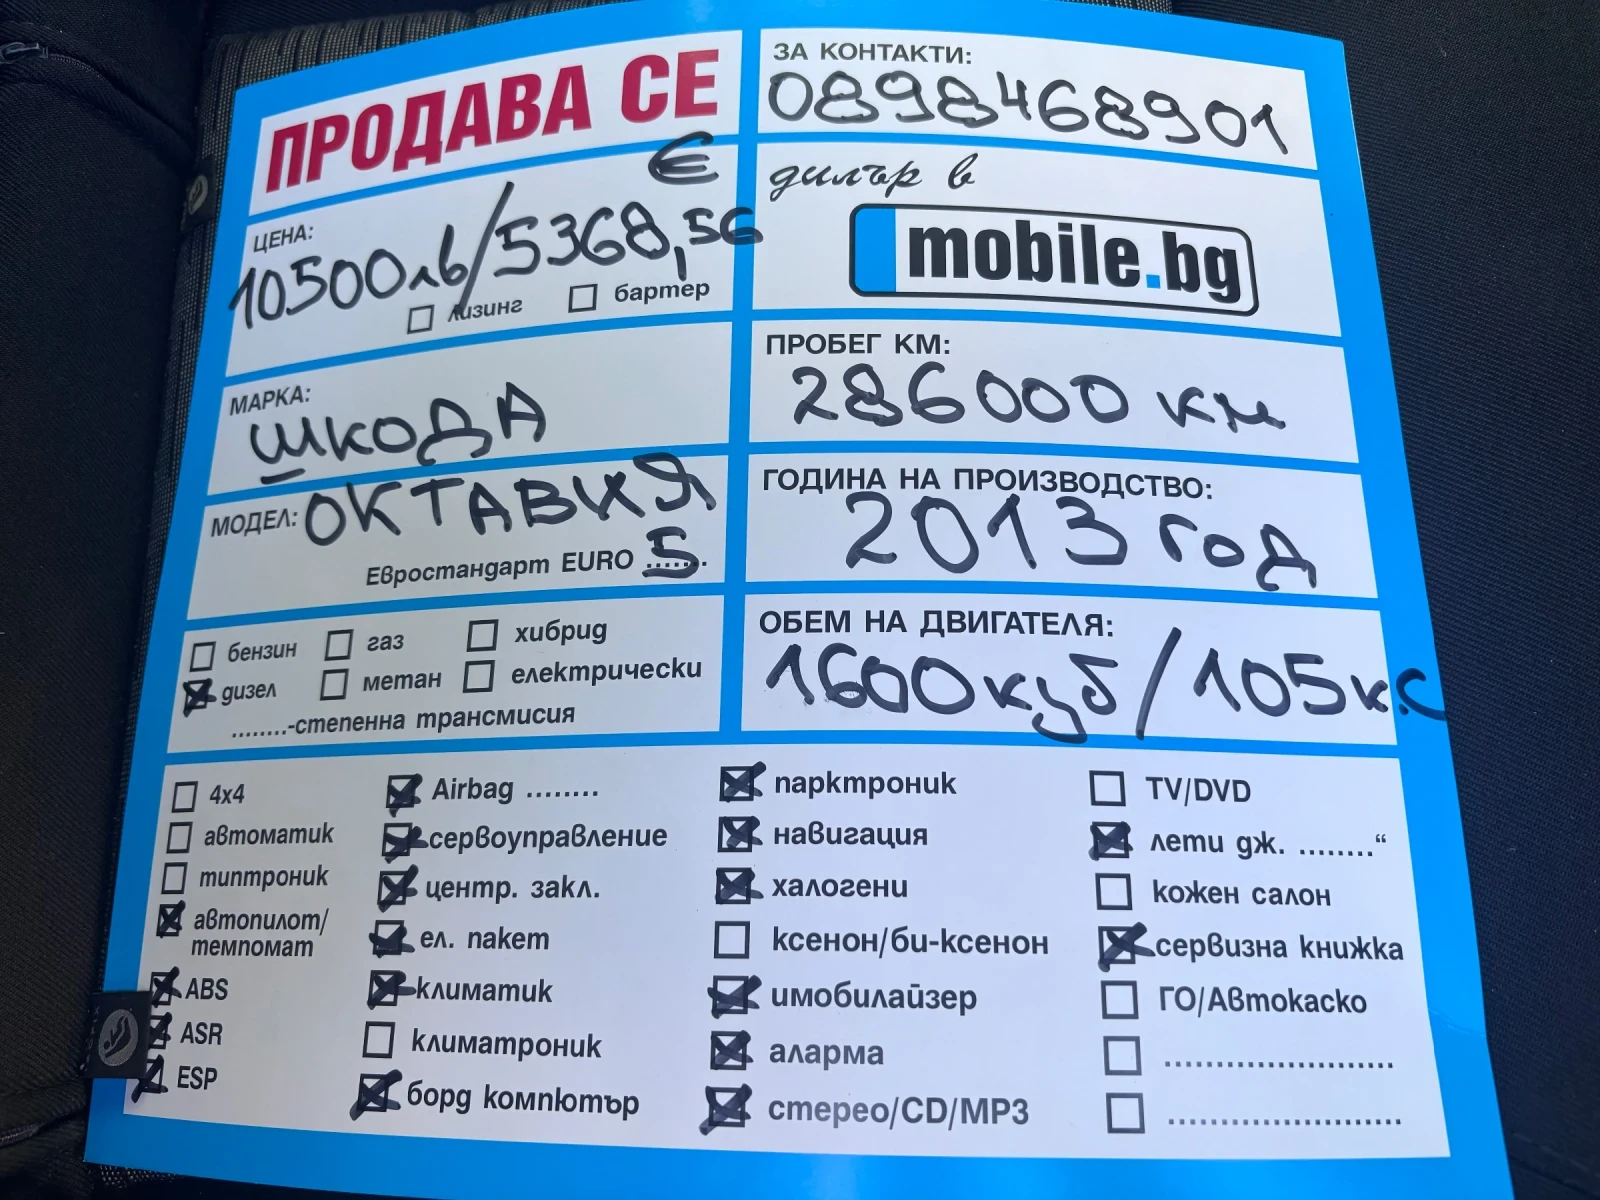 ПРОДАВА СЕ
ЗА КОНТАКТИ:
0898468901
ЦЕНА:
€
10500лв/5368,56
лизинг
бартер
дилър в
mobile.bg
МАРКА:
ШКОДА
ПРОБЕГ КМ:
286000 км
МОДЕЛ: ОКТАВИЯ
Евростандарт EURO 5
ГОДИНА НА ПРОИЗВОДСТВО:
2013 год
бензин газ хибрид
дизел метан електрически
........-степенна трансмисия
ОБЕМ НА ДВИГАТЕЛЯ:
1600куб/105к.с
4x4
автоматик
типтроник
автопилот/
темпомат
ABS
ASR
ESP
Airbag ........
сервоуправление
центр. закл.
ел. пакет
климатик
климатроник
борд компютър
парктроник
навигация
халогени
ксенон/би-ксенон
имобилайзер
аларма
стерео/CD/MP3
TV/DVD
лети дж. ........“
кожен салон
сервизна книжка
ГО/Автокаско
........................
........................